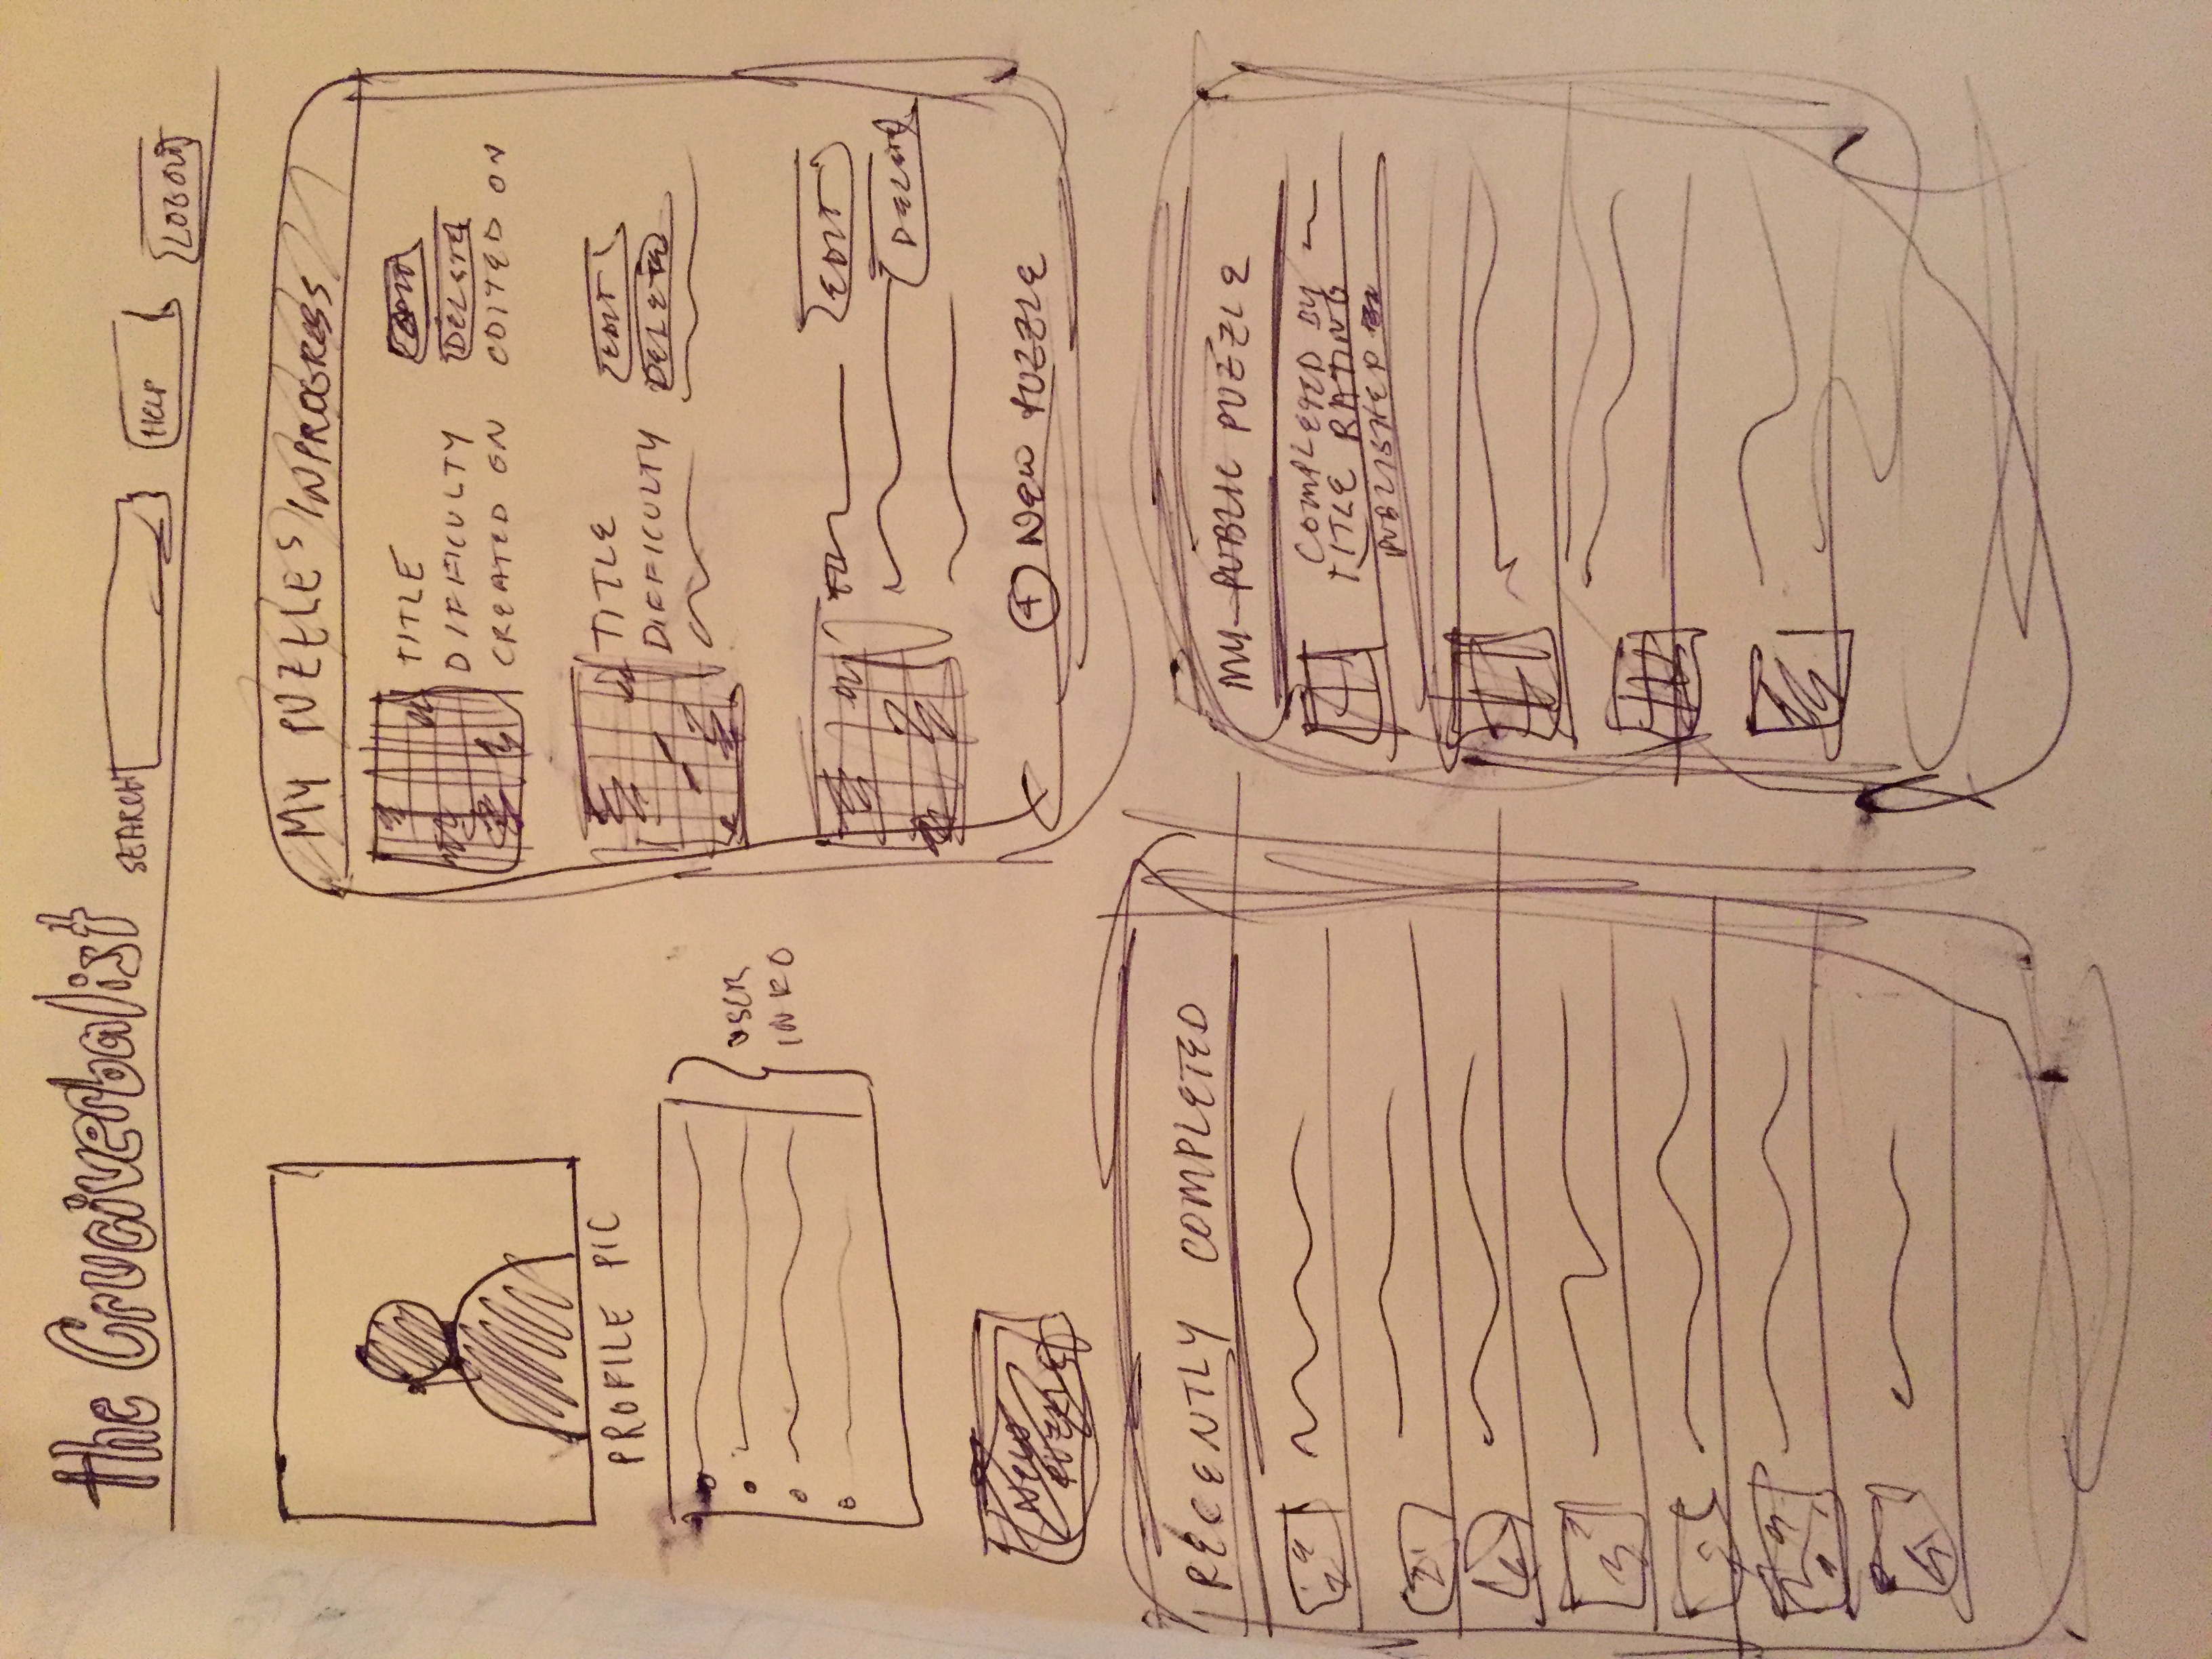 the Cruciverbalist
SEARCH
HELP
LOGOUT
PROFILE PIC
USER
INFO
MY PUZZLES INPROGRESS
TITLE
DIFFICULTY DELETE
CREATED ON EDITED ON
TITLE EDIT
DIFFICULTY DELETE
EDIT
DELETE
+ NEW PUZZLE
NEW
PUZZLE
RECENTLY COMPLETED
MY PUBLIC PUZZLE
COMPLETED BY
TITLE RATING
PUBLISHED